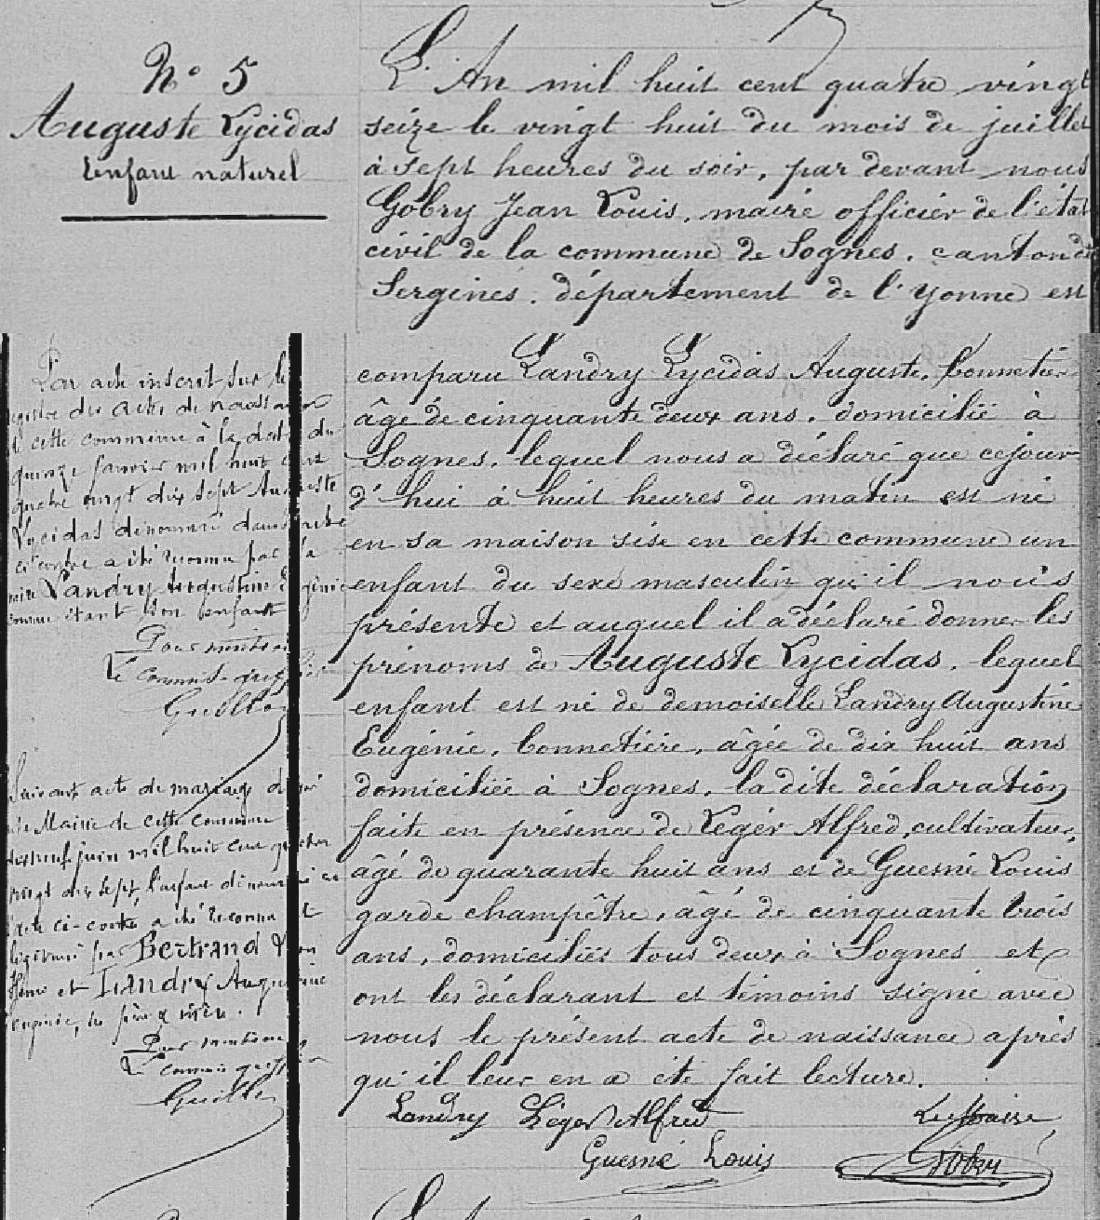 N° 5
Auguste Lycidas
Enfant naturel
L'An mil huit cent quatre vingt
seize le vingt huit du mois de juillet
à sept heures du soir, par devant nous
Gobry Jean Louis, maire officier de l'état
civil de la commune de Sognes, canton de
Sergines, département de l'Yonne est
comparu Landry Lycidas Auguste, bonnetier
âgé de cinquante deux ans, domicilié à
Sognes, lequel nous a déclaré que cejour
d'hui à huit heures du matin est né
en sa maison sise en cette commune un
enfant du sexe masculin qu'il nous
présente et auquel il a déclaré donner les
prénoms de Auguste Lycidas, lequel
enfant est né de demoiselle Landry Augustine
Eugénie, bonnetière, âgée de dix huit ans
domiciliée à Sognes, la dite déclaration
faite en présence de Léger Alfred, cultivateur,
âgé de quarante huit ans et de Guesné Louis
garde champêtre, âgé de cinquante trois
ans, domiciliés tous deux à Sognes et
ont les déclarant et témoins signé avec
nous le présent acte de naissance après
qu'il leur en a été fait lecture.
Landry Léger Alfred Le Maire
Guesné Louis Gobry
Par acte inscrit sur le
registre des actes de naissance
de cette commune à la date du
quinze janvier mil huit cent
quatre vingt dix sept Auguste
Lycidas dénommé dans l'acte
ci contre a été reconnu par la
mère Landry Augustine Eugénie
comme étant son enfant
Pour mention
Le Commis-greffier
Suivant acte de mariage
Mairie de cette commune
dixneuf juin mil huit cent quatre
vingt dix sept, l'enfant dénommé en
l'acte ci-contre a été reconnu et
légitimé par Bertrand
et Landry Augustine
Eugénie, ses père & mère.
Pour mention
Le commis greffier